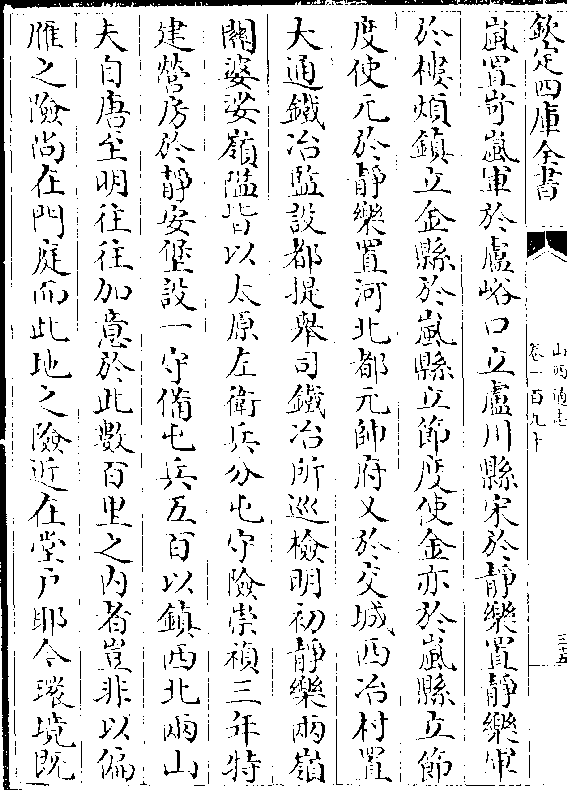 欽定四庫全書
山西通志
卷一百九十
三五
嵐置岢嵐軍於盧峪口立盧川縣宋於靜樂置靜樂軍
於樓煩鎮立金縣於嵐縣立節度使金亦於嵐縣立節
度使元於靜樂置河北都元帥府又於交城西冶村置
大通鐵冶監設都提舉司鐵冶所巡檢明初靜樂兩嶺
關婆娑嶺隘皆以太原左衛兵分屯守險崇禎三年特
建營房於靜安堡設一守備屯兵五百以鎮西北兩山
夫自唐至明往往加意於此數百里之內者豈非以偏
雁之險尚在門庭而此地之險近在堂戶耶今環境既